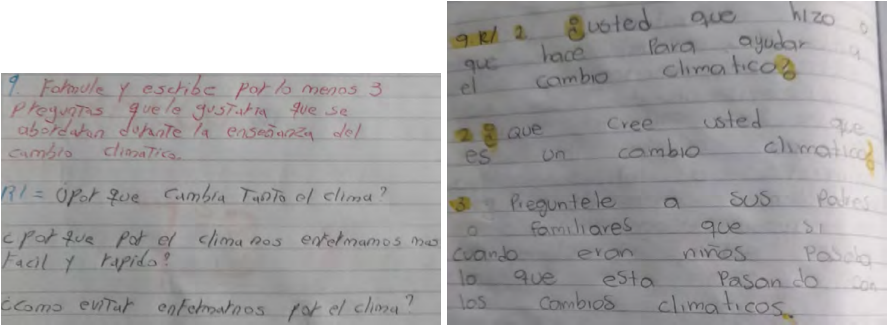 9. Formule y escribe por lo menos 3
preguntas que le gustaria que se
abordaran durante la enseñanza del
cambio climatico.
R/= ¿por que cambia tanto el clima?
¿por que por el clima nos enfermamos mas
facil y rapido?
¿como evitar enfermarnos por el clima?
9 R/ 1 ¿usted que hizo o
que hace para ayudar a
el cambio climatico?
2 ¿que cree usted que
es un cambio climatico?
3 Preguntele a sus Padres
o familiares que si
cuando eran niños Pasaba
lo que esta Pasando con
los cambios climaticos.